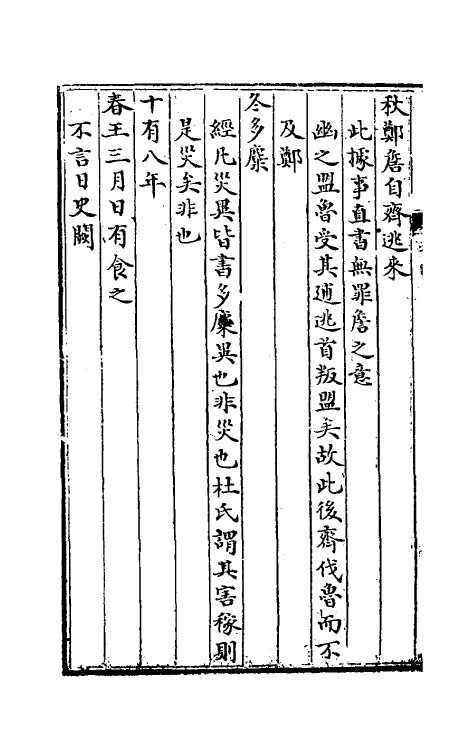 秋鄭詹自齊逃来
此據事直書無罪詹之意
幽之盟魯受其逋逃首叛盟矣故此後齊伐魯而不
及鄭
冬多麋
經凡災異皆書多麋異也非災也杜氏謂其害稼則
是災矣非也
十有八年
春王三月日有食之
不言日史闕